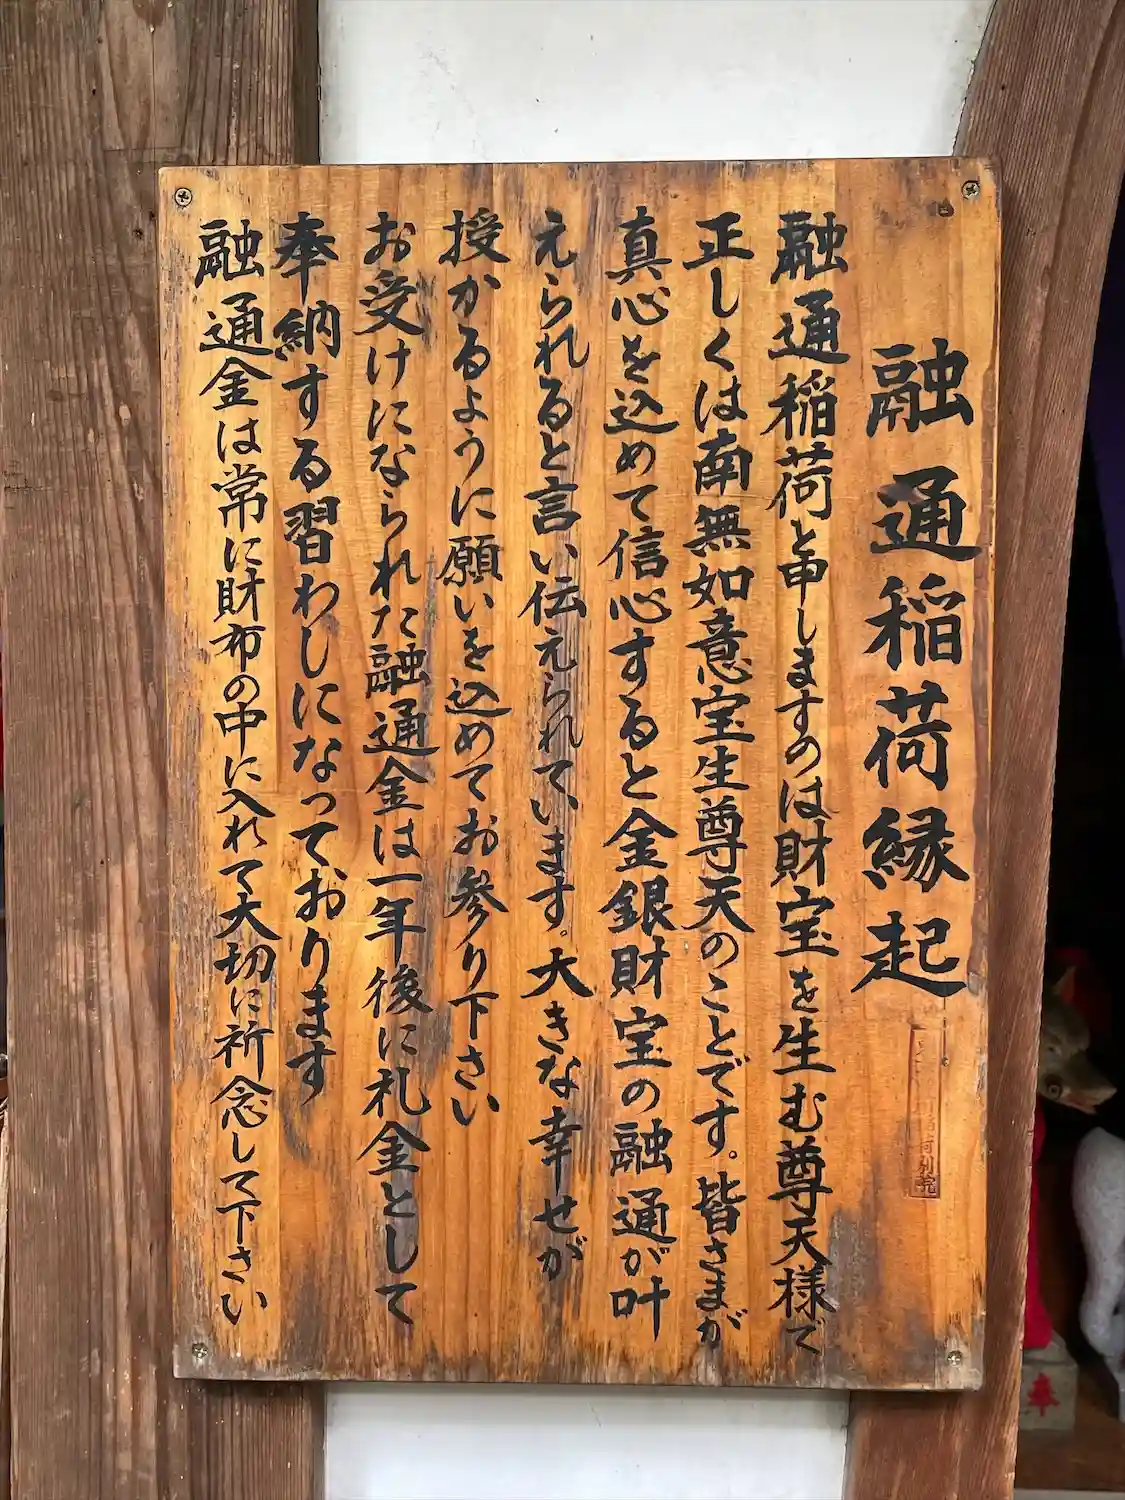 融通稲荷縁起
融通稲荷と申しますのは財宝を生む尊天様で
正しくは南無如意宝生尊天のことです。皆さまが
真心を込めて信心すると金銀財宝の融通が叶
えられると言い伝えられています。大きな幸せが
授かるように願いを込めてお参り下さい
お受けになられた融通金は一年後に札金として
奉納する習わしになっております
融通金は常に財布の中に入れて大切に祈念して下さい
稲荷別院
奉